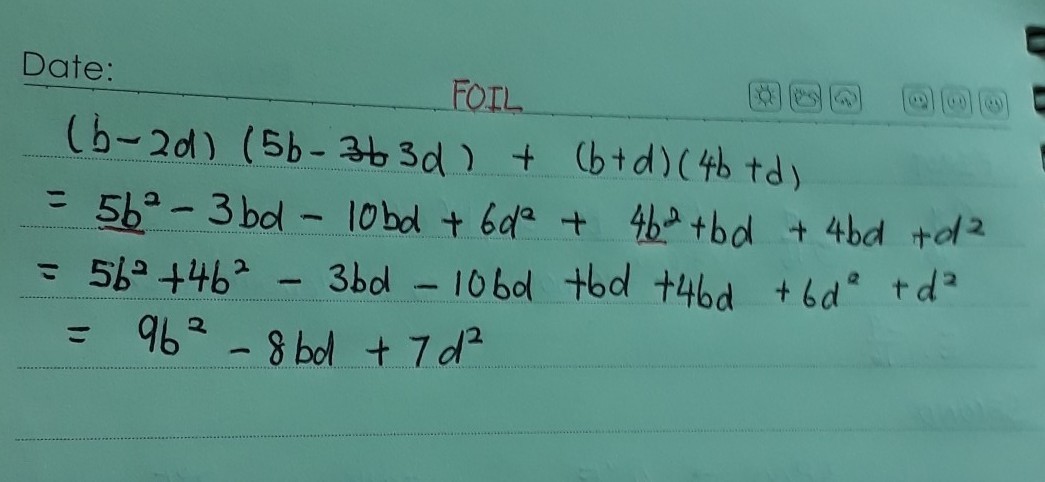 Date:
FOIL
(b-2d) (5b- 3b 3d) + (b+d)(4b+d)
= 5b² - 3bd - 10bd + 6d² + 4b² +bd + 4bd +d²
= 5b² +4b² - 3bd - 10bd +bd +4bd +6d² +d²
= 9b² - 8bd + 7d²